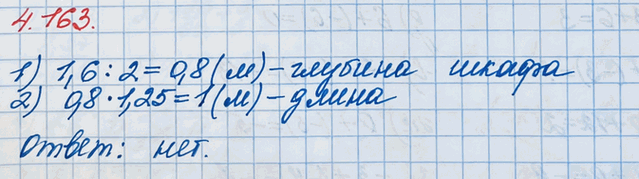 4.163.
1) 1,6 : 2 = 0,8 (м) – глубина шкафа
2) 0,8 · 1,25 = 1 (м) – длина
Ответ: нет.